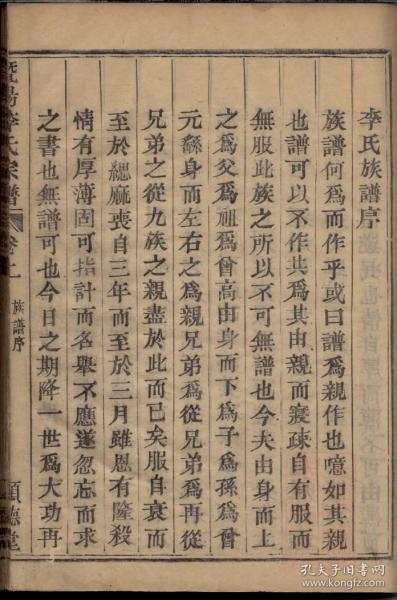 李氏族譜序
族譜何爲而作乎或曰譜爲親作也噫如其親
也譜可以不作其爲其由親而寖疎自有服而
無服此族之所以不可無譜也今夫由身而上
之爲父爲祖爲曾高由身而下爲子爲孫爲曾
元繇身而左右之爲親兄弟爲從兄弟爲再從
兄弟之從九族之親盡於此而已矣服自衰而
至於緦麻喪自三年而至於三月雖恩有隆殺
情有厚薄固可指計而名舉不應遂忽忘而求
之書也無譜可也今日之期降一世爲大功再
暨陽李氏宗譜
卷上
族譜序
順德堂
孔夫子旧书网
www.kongfz.com